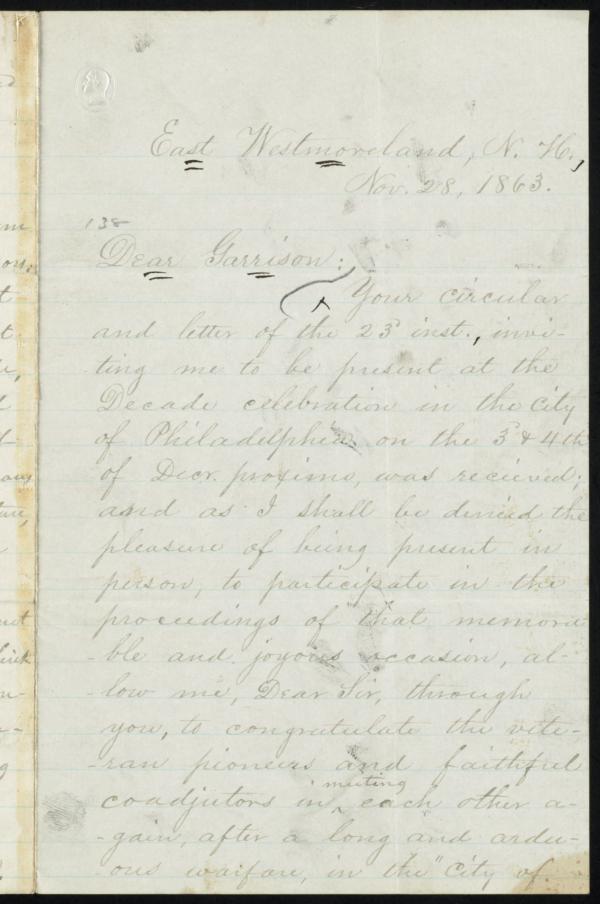 East Westmoreland, N. H.,
Nov. 28, 1863.
138
Dear Garrison:
Your circular
and letter of the 23d inst., invi-
ting me to be present at the
Decade celebration in the City
of Philadelphia on the 3d & 4th
of Decr. proximo, was recieved;
and as I shall be denied the
pleasure of being present in
person, to participate in the
proceedings of that memora
-ble and joyous occasion, al-
-low me, Dear Sir, through
you, to congratulate the vete-
-ran pioneers and faithful
meeting
coadjutors in ^ each other a-
-gain, after a long and ardu-
-ous warfare, in the "City of